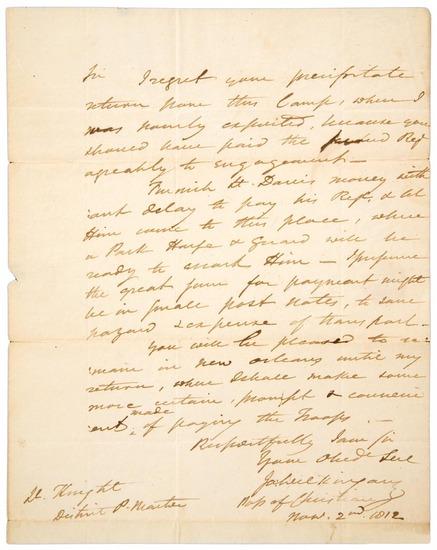 Sir I regret your precipitate
return from this Camp, when I
was hourly expected, because you
should have paid the Regt
agreably to engagement —
Furnish Lt. Davis money with
out delay to pay his Regt. & let
Him come to this place, where
a Pack Horse & Guard will be
ready to Him — I presume
the great sum for payment might
be in small post notes, to save
hazard & expense of transport —
You will be pleased to re
main in new orleans until my
return, when I shall make some
more certain, prompt & conveni
ent mode of paying the Troops —
Respectfully I am Sir
Your Obedt Sert
Ja: Wilkinson
Bay of St Christiana
Nov. 2nd. 1812
Lt. Knight
District P. Master